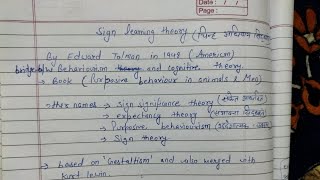 Date : / /
Page :
Sign learning theory (चिन्ह अधिगम सिद्धांत
By Edward Tolman in 1948 (American)
bridge b/w Behaviourism theory and cognitive theory.
→ Book (Purposive behaviour in animals & Men)
→ other names → Sign significance theory (
→ expectancy theory (
→ Purposive behaviourism (
→ Sign theory
→ based on 'Gestaltism' and also merged with
Kurt lewin.